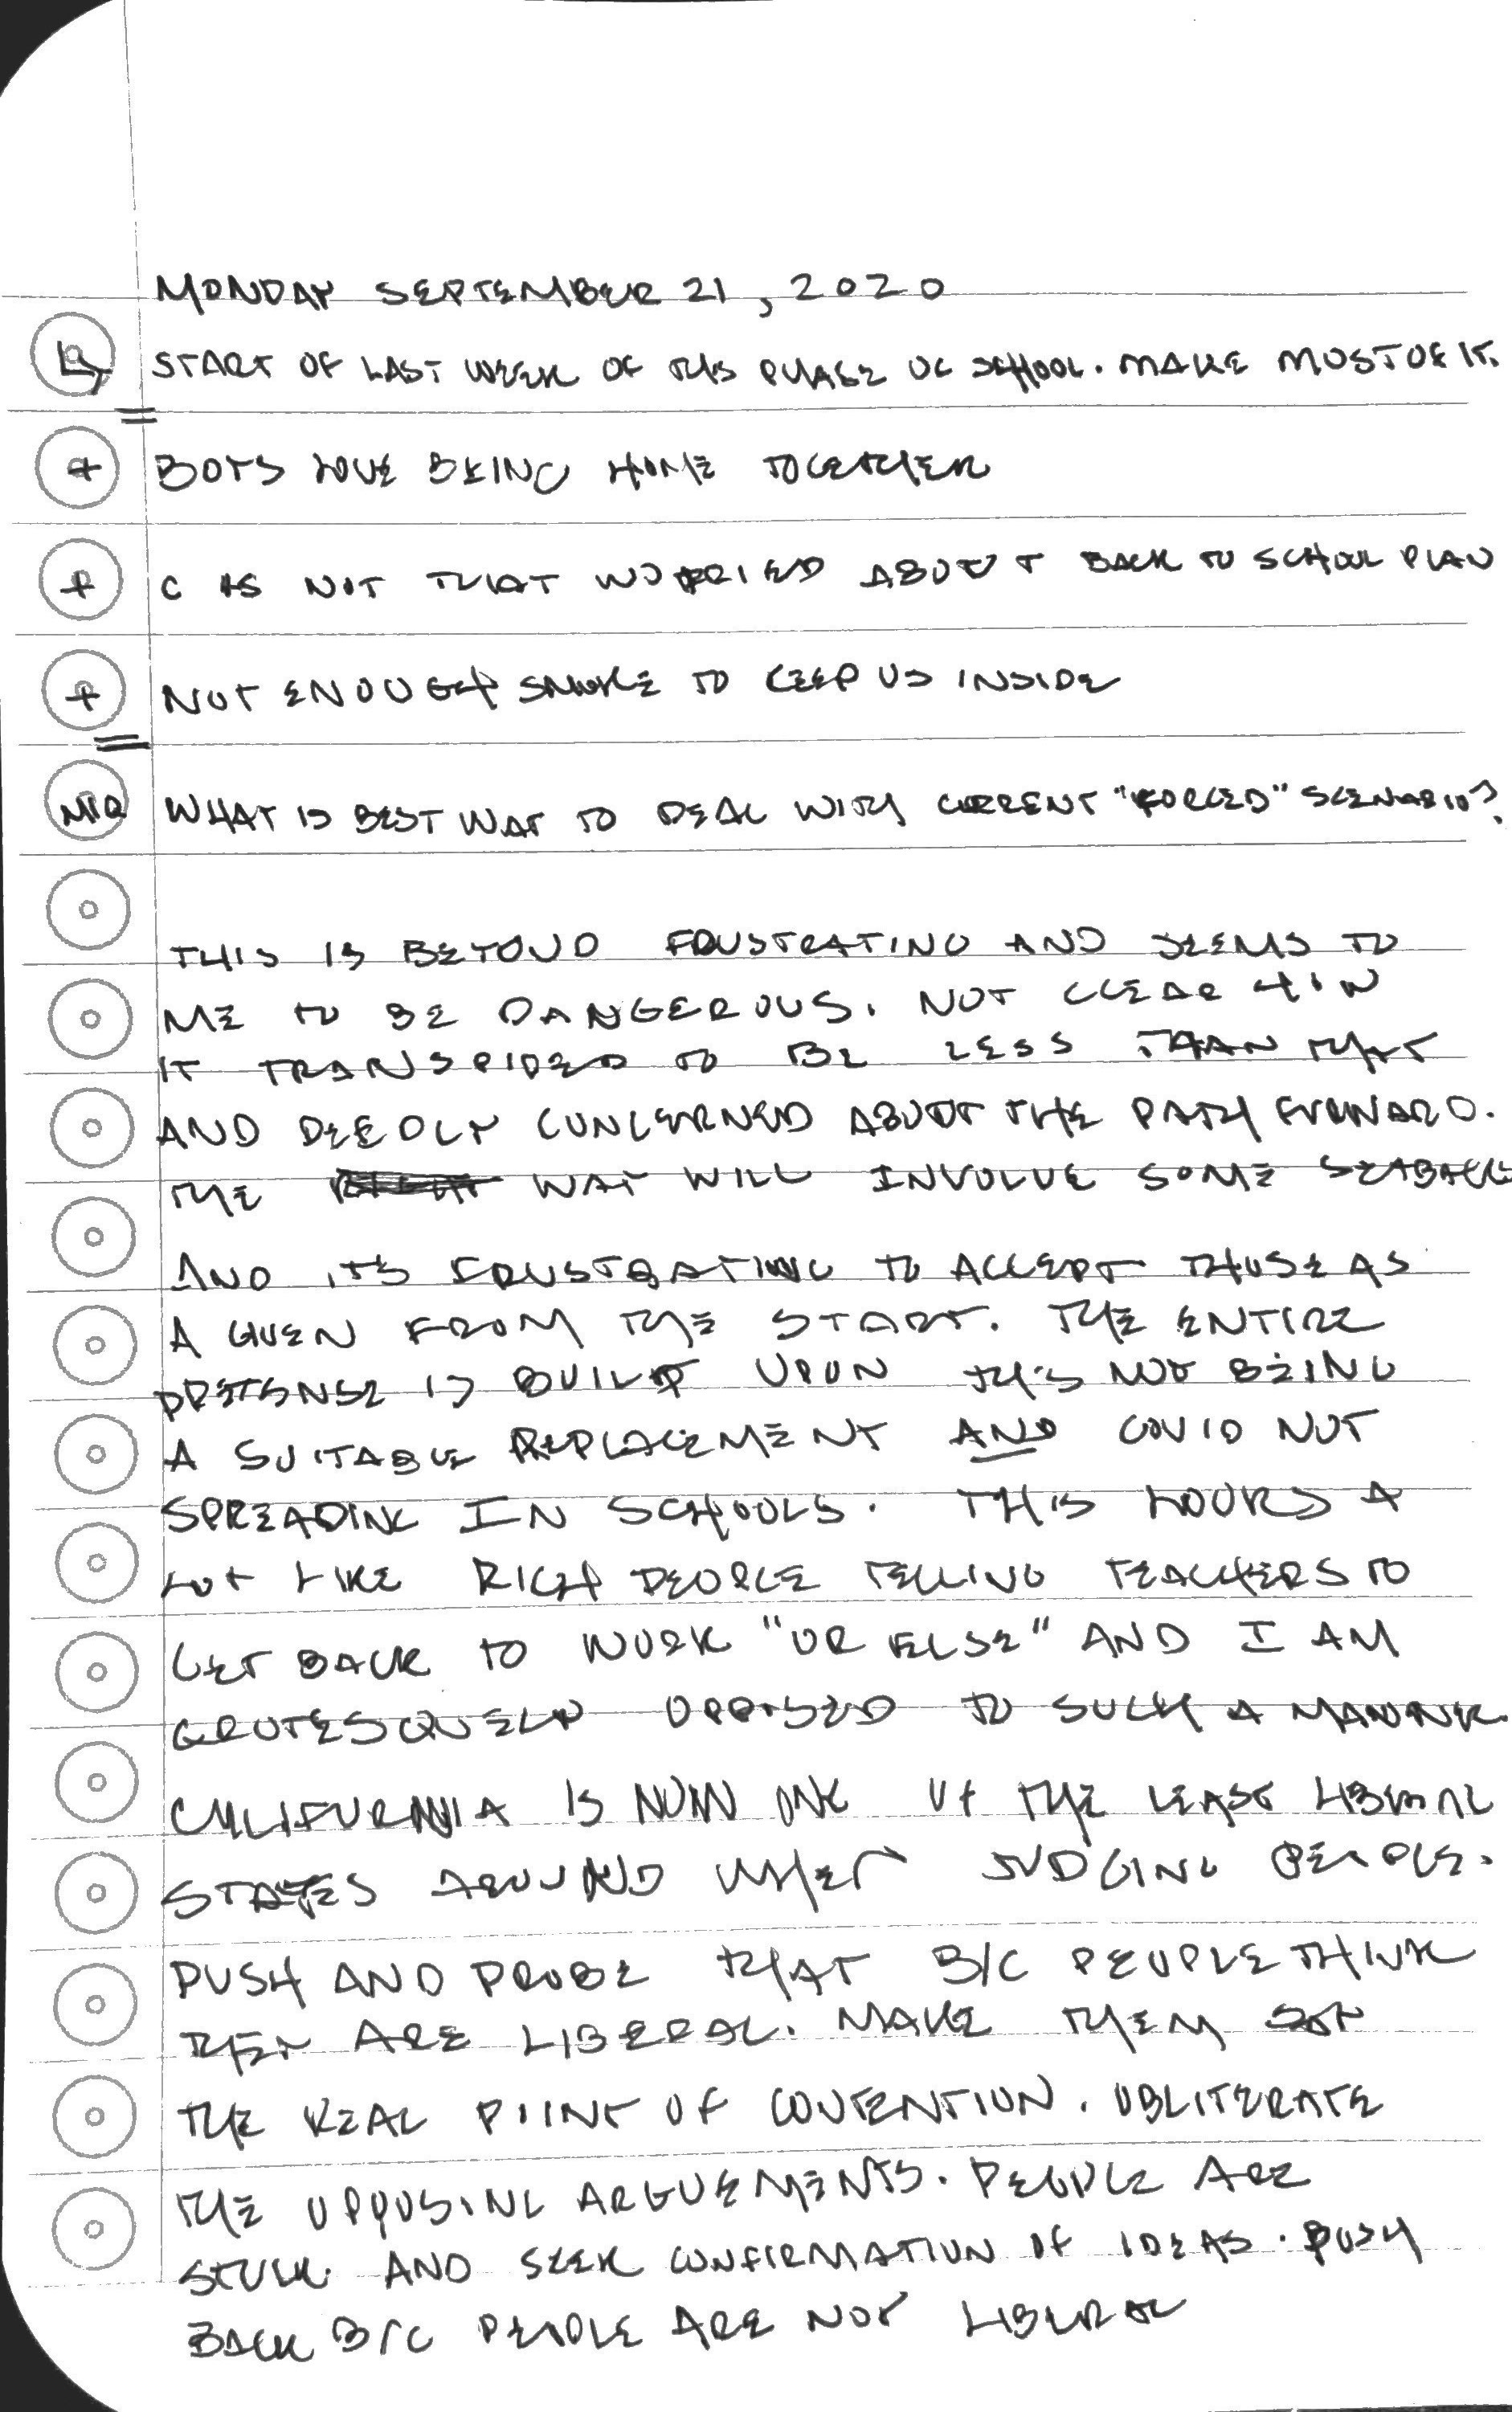 MONDAY SEPTEMBER 21, 2020
START OF LAST WEEK OF THIS PHASE OF SCHOOL. MAKE MOST OF IT.
+ BOYS LOVE BEING HOME TOGETHER
+ C IS NOT THAT WORRIED ABOUT BACK TO SCHOOL PLAN
+ NOT ENOUGH SMOKE TO KEEP US INSIDE
MIQ WHAT IS BEST WAY TO DEAL WITH CURRENT "FORCED" SCENARIO?
THIS IS BEYOND FRUSTRATING AND SEEMS TO
ME TO BE DANGEROUS. NOT CLEAR HOW
IT TRANSPIRED TO BE LESS THAN THAT
AND DEEPLY CONCERNED ABOUT THE PATH FORWARD.
THE WAY WILL INVOLVE SOME SETBACKS
AND ITS FRUSTRATING TO ACCEPT THOSE AS
A GIVEN FROM THE START. THE ENTIRE
PRETENSE IS BUILT UPON THIS NOT BEING
A SUITABLE REPLACEMENT AND COVID NOT
SPREADING IN SCHOOLS. THIS A
LOT LIKE RICH PEOPLE TELLING TEACHERS TO
GET BACK TO WORK "OR ELSE" AND I AM
GROTESQUELY OPPOSED TO SUCH A
CALIFORNIA IS NOW ONE OF THE LEAST LIBERAL
STATES AROUND WHEN JUDGING PEOPLE.
PUSH AND PROBE THAT B/C PEOPLE THINK
THEY ARE LIBERAL. MAKE THEM
THE REAL POINT OF CONTENTION. OBLITERATE
THE OPPOSING ARGUEMENTS. PEOPLE ARE
STUCK AND SEEK CONFIRMATION OF IDEAS. PUSH
BACK B/C PEOPLE ARE NOT LIBERAL